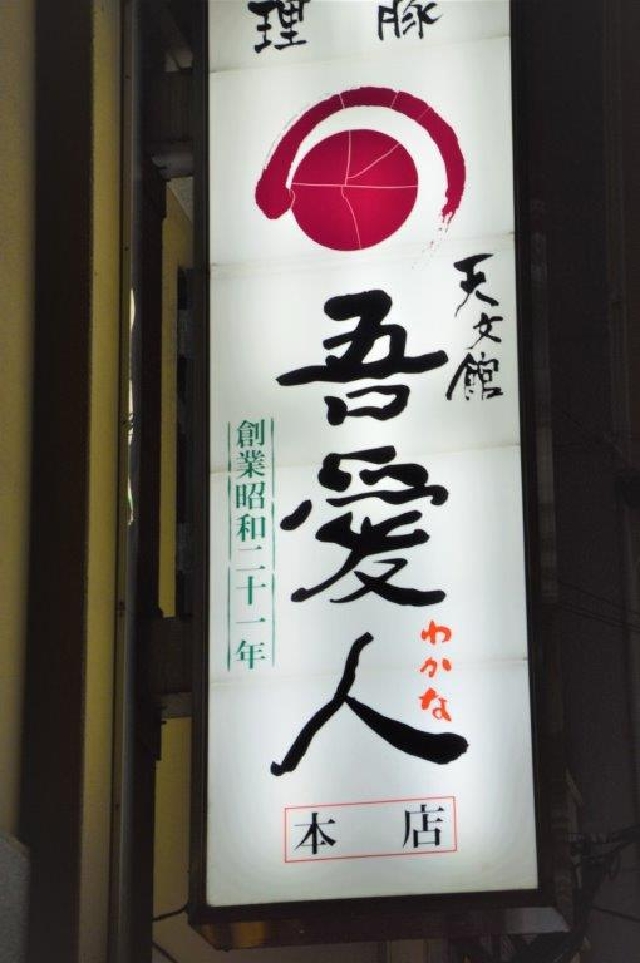 豚
理
天文館
吾愛人
わかな
創業昭和二十一年
本店